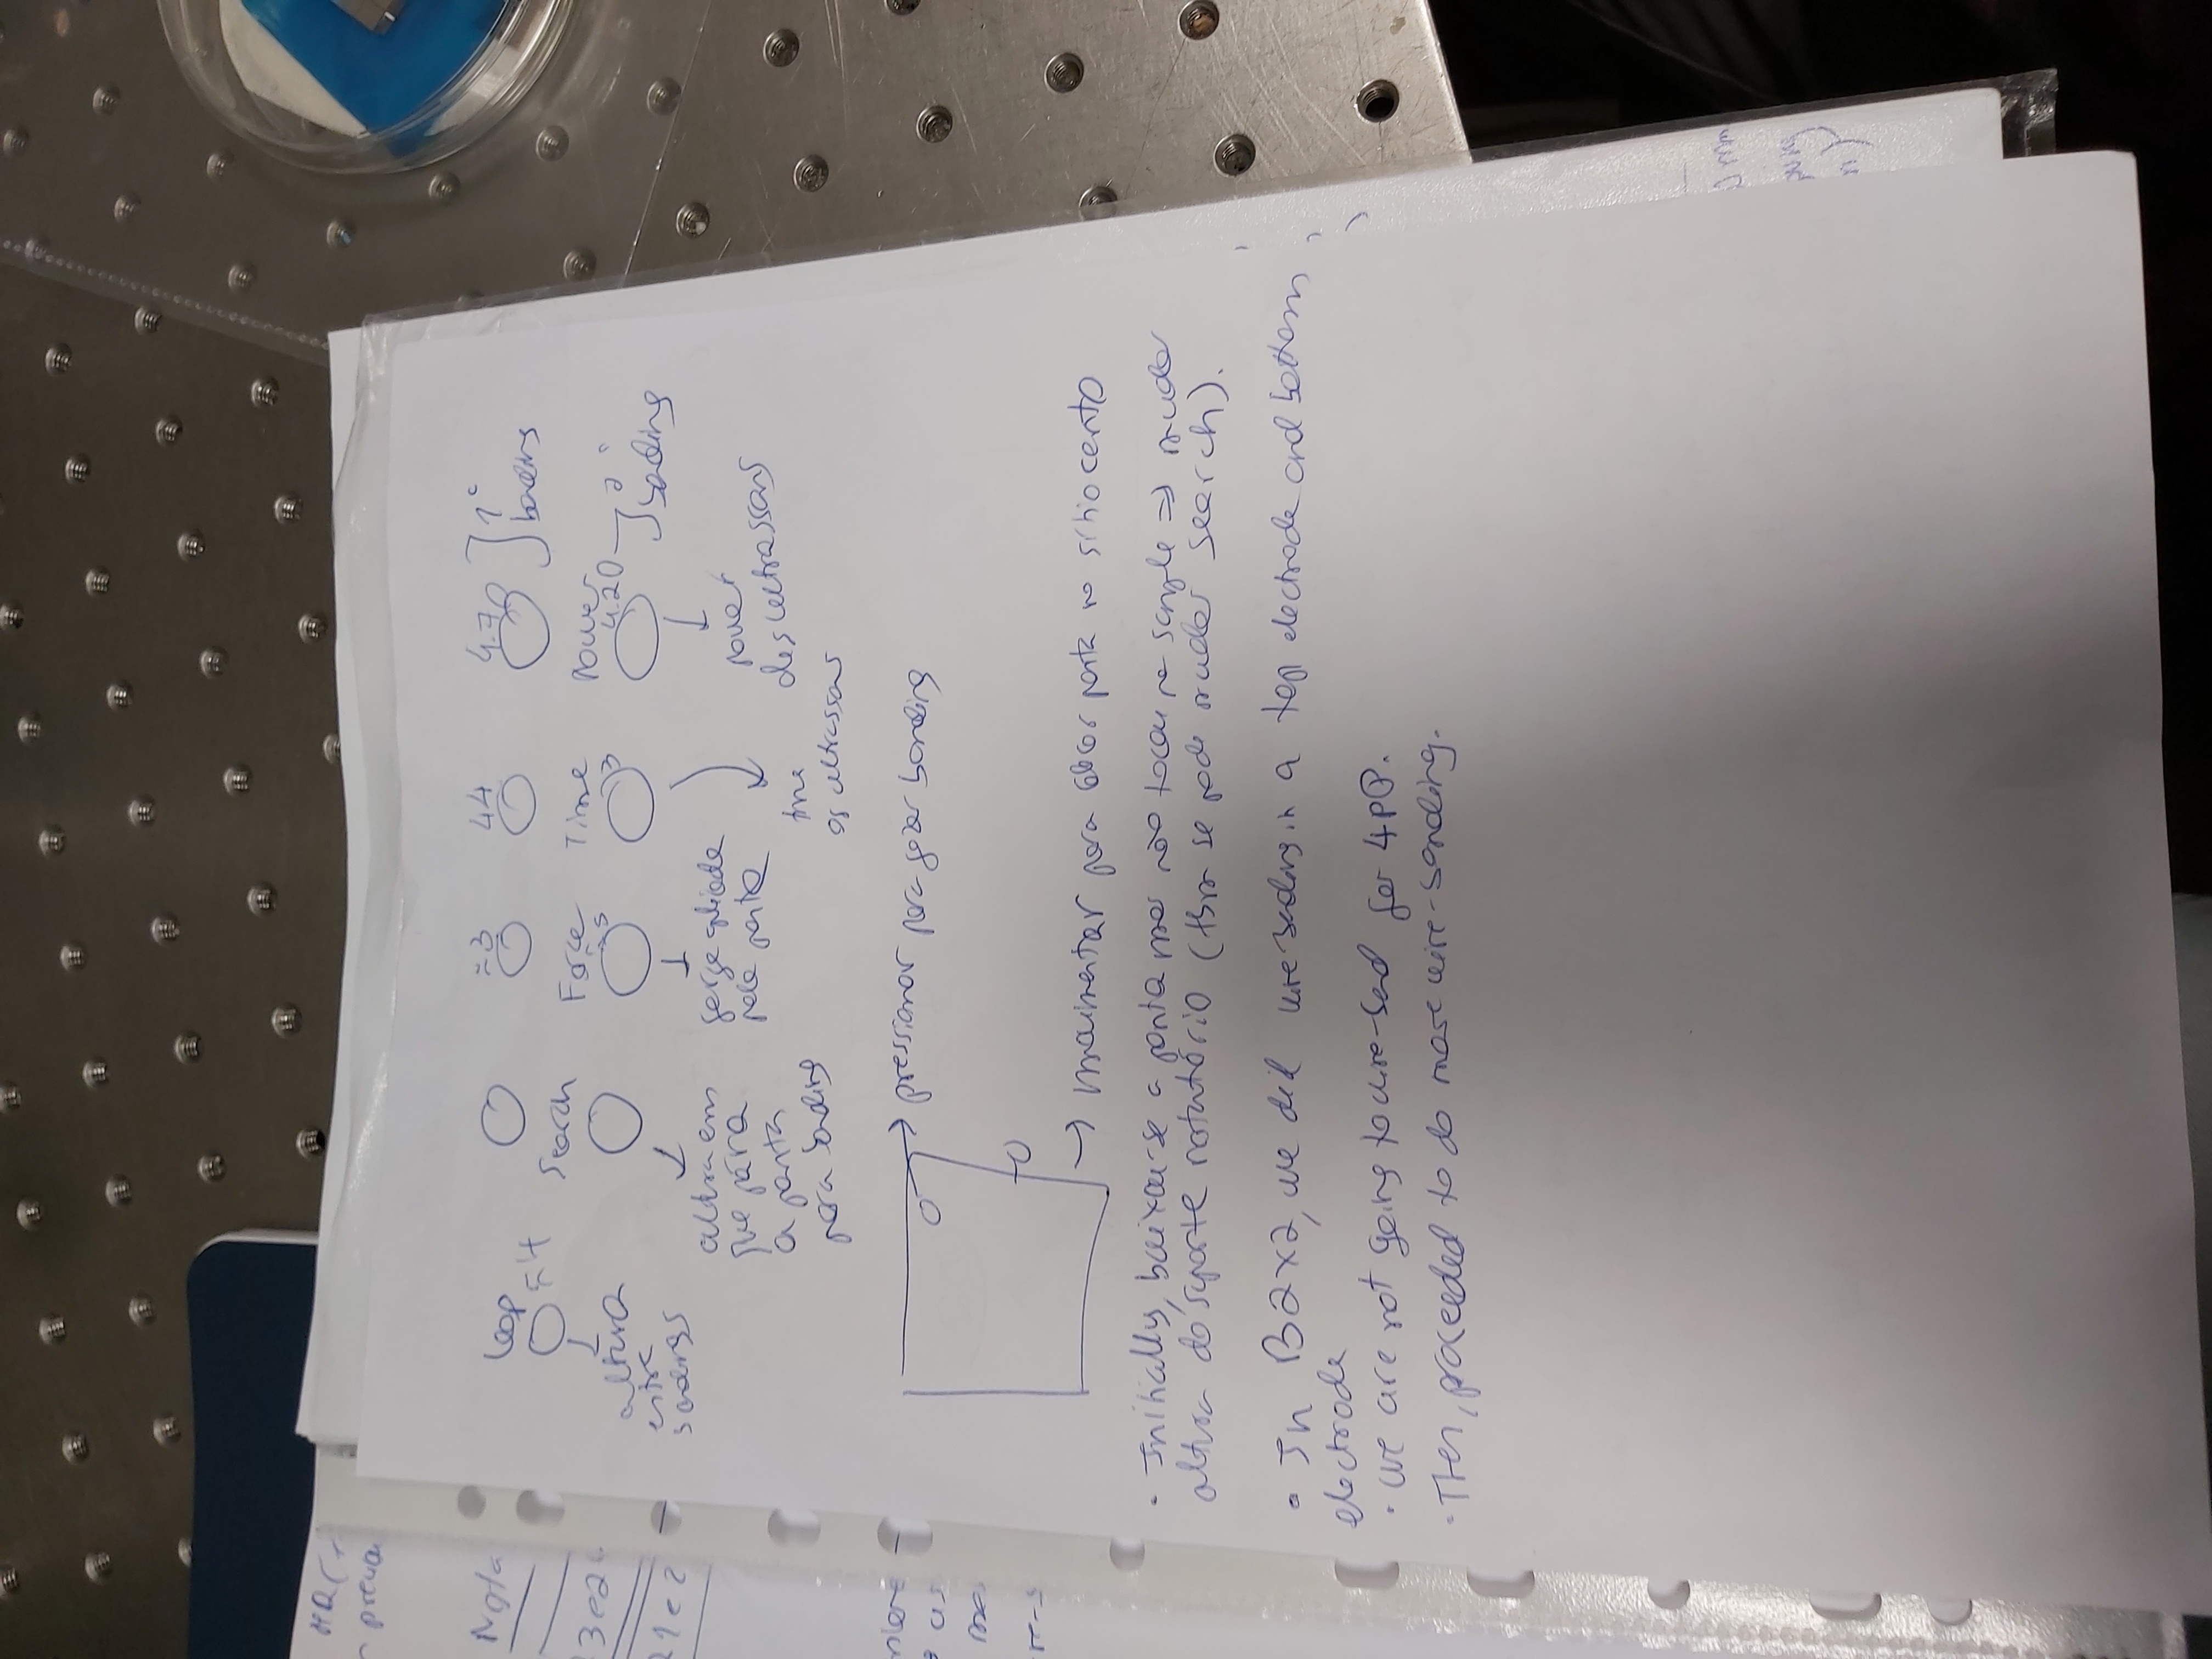 HR(
n previa
Nota
3e2
21e2
as
re-s
loop
≈4
altura
entre
bondings
Search
altura em
que pára
a ponta
para bonding
≈3
Force
força aplicada
pela ponta
44
Time
3
time
os ultrassons
4.70
Power
4.20
power
dos ultrassons
1°
bonding
2°
bonding
pressionar para fazer bonding
movimentar para colocar ponta no sítio certo
• Initially, baixou-se a ponta mas não tocou na sample ⇒ mudar
altura do suporte rotatório (tbm se pode mudar search).
• In B2x2, we did wire bonding in a top electrode and bottom
electrode
• we are not going to wire-bond for 4PP.
• Then, proceeded to do more wire-bonding.
mm